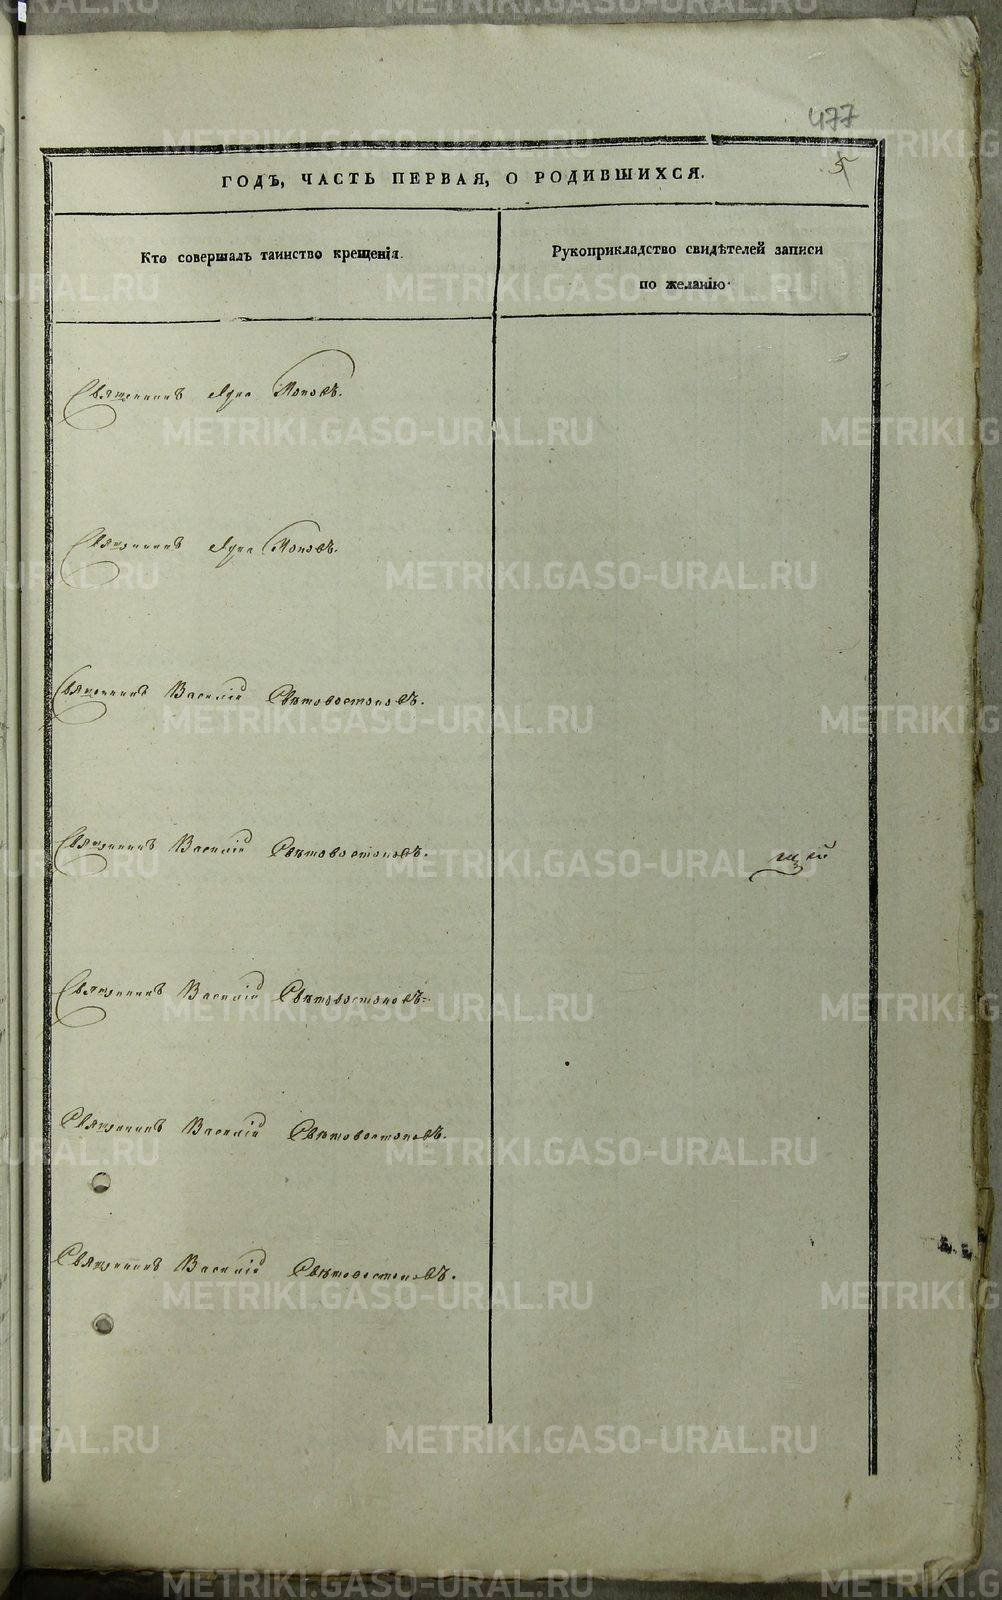 477
5
ГОДЪ, ЧАСТЬ ПЕРВАЯ, О РОДИВШИХСЯ.
Кто совершалъ таинство крещенія.
Рукоприкладство свидѣтелей записи
по желанію.
Священникъ Лука Поповъ.
Священникъ Лука Поповъ.
Священникъ Василій Свѣтовостоковъ.
Священникъ Василій Свѣтовостоковъ.
щей
Священникъ Василій Свѣтовостоковъ.
Священникъ Василій Свѣтовостоковъ.
Священникъ Василій Свѣтовостоковъ.
METRIKI.GASO-URAL.RU